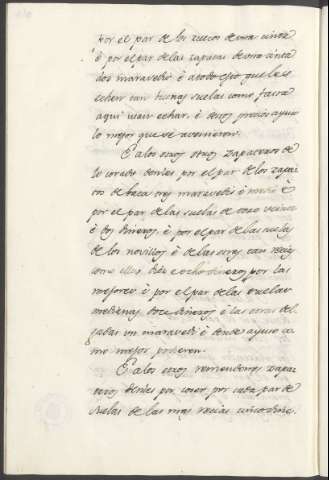 por el par de los zuecos de otra cinta
é por el par de las zapatas de otro cinta
dos maravedis é a todo esto que les
echen tan buenas suelas como fasta
aqui usan echar, é dende ayuso
lo mejor que se avinieren.
E a los otros zapateros de
lo corado denles por el par de los zapa
tos de baca tres maravedis é medio é
por el par de las suelas de toro veinte
é dos dineros é por el par de las suelas
de los novillos é de las otras tan recias
como ellas diez e ocho dineros por las
mejores é por el par de las suelas
medianas doce dineros é las otras del
gadas un maravedi é dende ayuso co
mo mejor pudieren.
E a los otros remendones zapa
teros denles por coser por cada par de
suelas de las mas recias cinco dine.